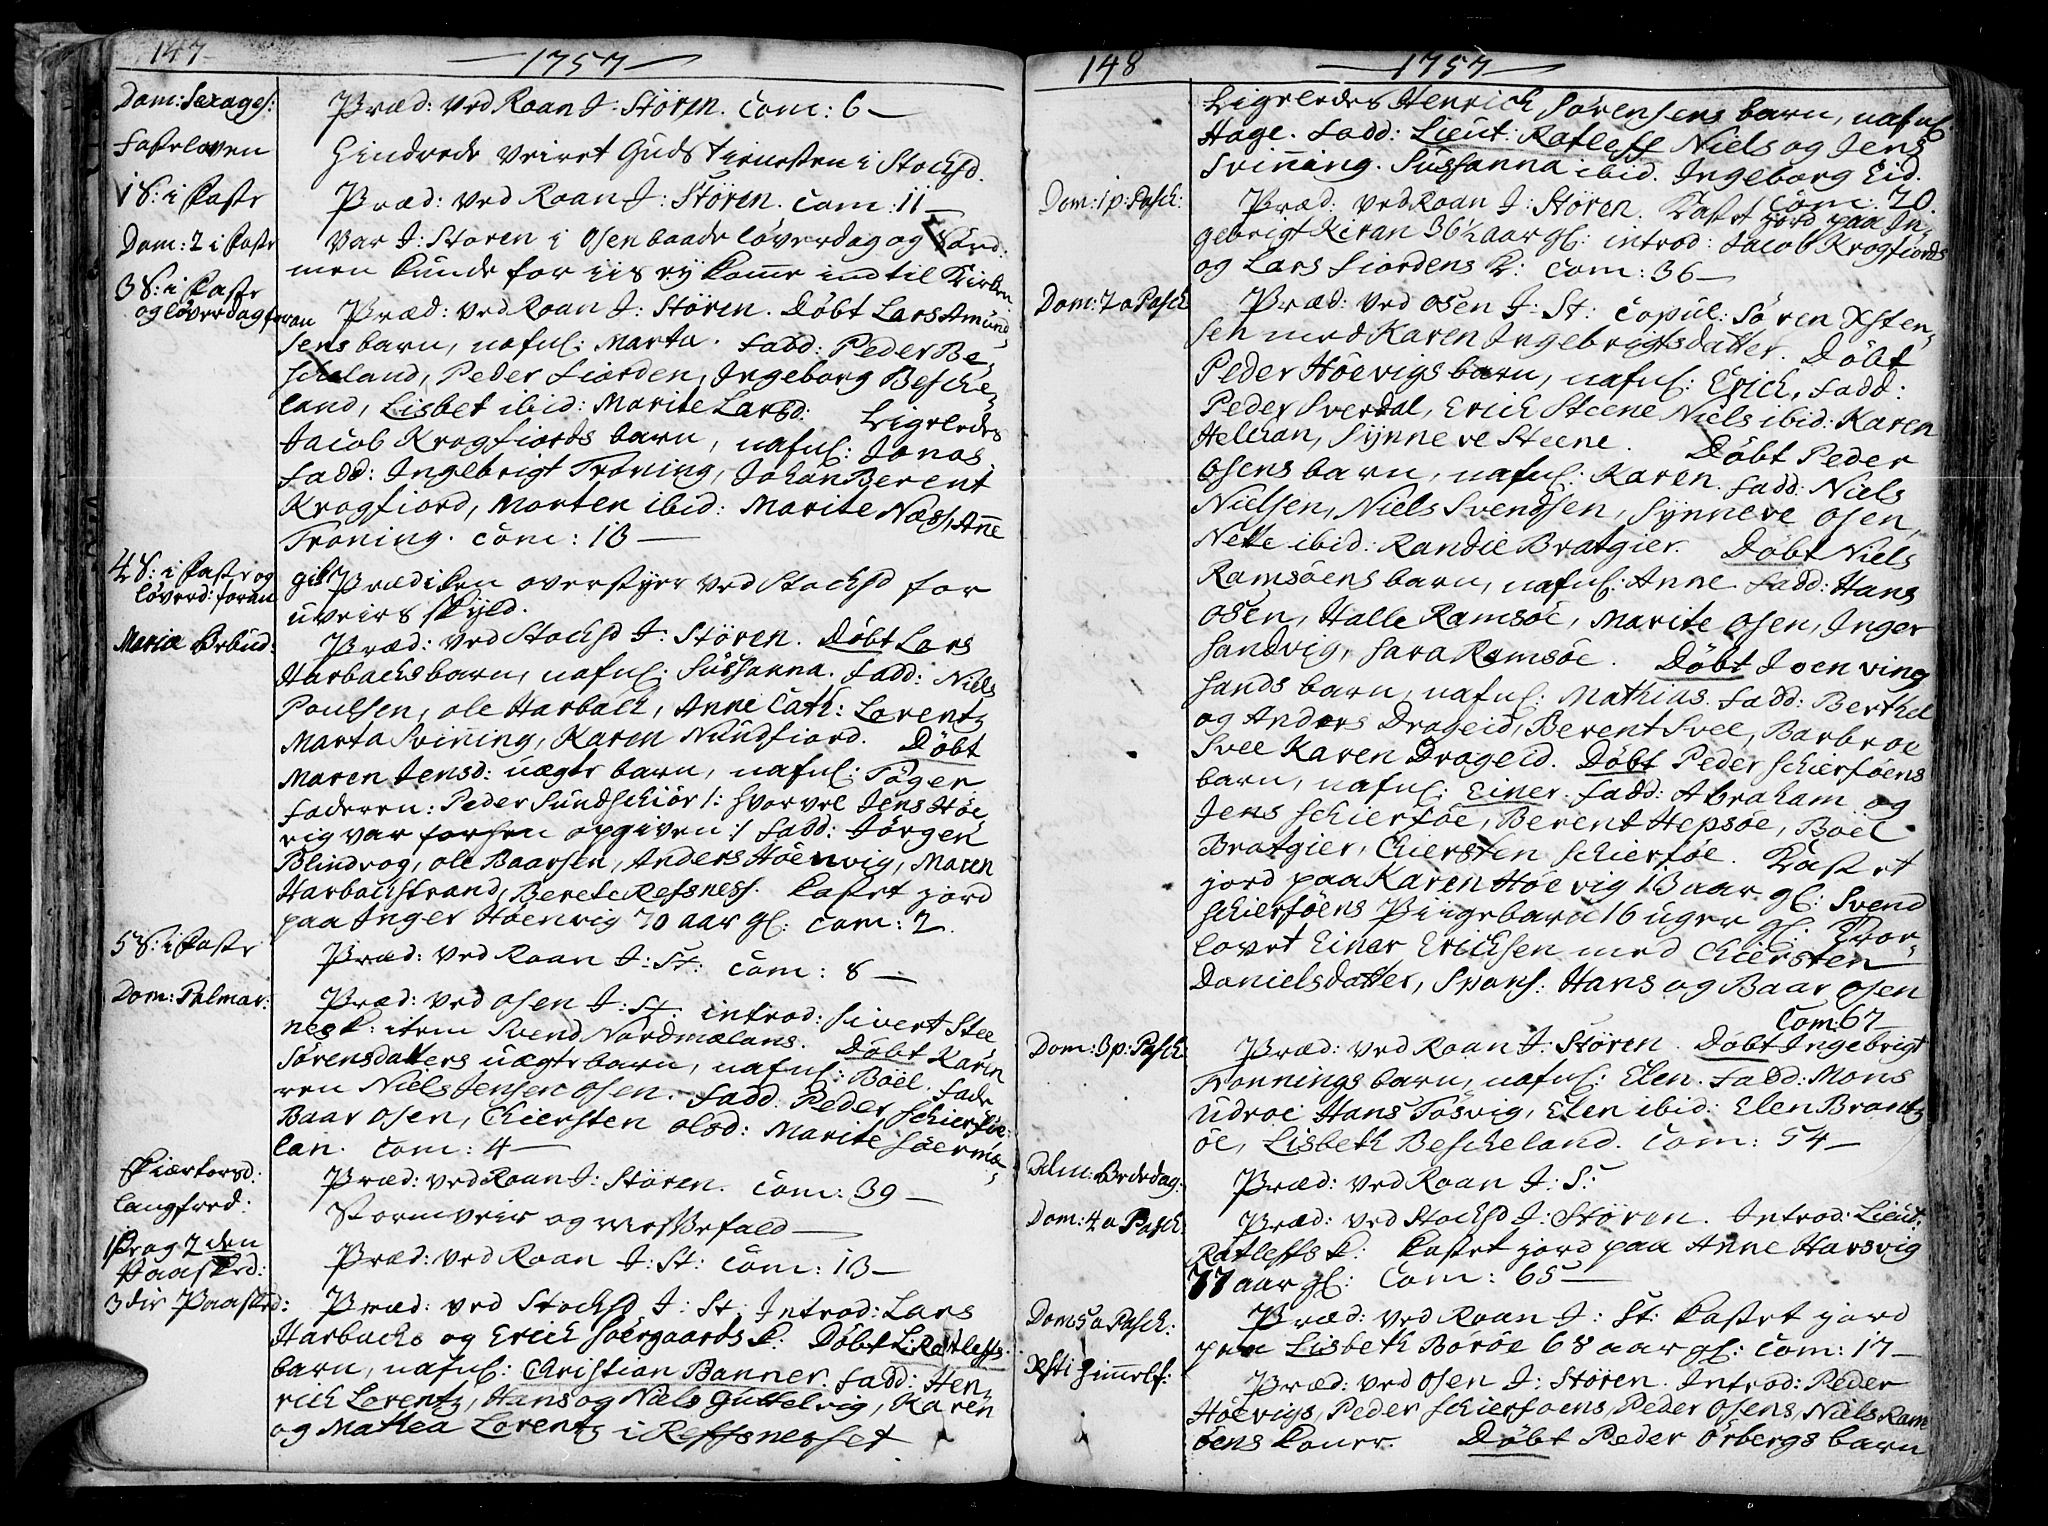 147 1757
Dom: Sexages: Præd: ved Roan J: Stören. Com: 6
Fastelaven hindrede veiret Guds tienesten i Stochsd.
1 S: i Faste Præd: ved Roan J: Stören. Com: 11
Dom: 2 i Faste Var J: Stören i Osen baade löverdag og Sönd:
men kunde for iis ej komme ind til Kirken
3 S: i Faste
og löverdag foran Præd: ved Roan J: Stören. Döbt Lars Amund
sens barn, nafnl: Marta. Fadd: Peder Be
scheland, Peder Fiorden, Ingeborg Besche
land, Lisbet ibid: Marite Larsd: Ligeledes
Jacob Kragfiords barn, nafnl: Jonas
Fadd: Ingebrigt Trøning, Johan Berent
Kragfiord, Morten ibid: Marite Næss, Anne
Trøning. Com: 13
4 S: i Faste og
löverd: foran gik Prædiken overstyer ved Stochsd for
uveirs skyld.
Maria Bebud: Præd: ved Stochsd J: Stören. Döbt Lars
Harbachs barn, nafnl: Sussanna. Fadd: Niels
Poulsen, Ole Harbach, Anne Cath: Lorentz
Marta Svinning, Karen Nundfiord. Döbt
Maren Jensd: uægte barn, nafnl: Töger
Faderen: Peder Sundschiör /: hvorvel Jens Höe
vig var forhen opgiven :/ Fadd: Jörgen
Blindvog, Ole Baarsen, Anders Höenvig, Maren
Harbachstrand, Berete Refsness. Kastet jord
paa Inger Höenvig 70 aar gl: Com: 2.
5 S: i Faste Præd: ved Roan J: St: Com: 8
Dom: Palmar: Præd: ved Osen J: St: introd: Sivert Stee
nes K: item Svend Nordmælans. Döbt Karen
Sörensdatters uægte barn, nafnl: Böel. Fade
ren Niels Jensen Osen. Fadd: Peder Schierföe
Baar Osen, Chiersten Olsd: Marite Söermæ
lan. Com: 4
Skiertorsd: Præd: ved Roan J: Stören. Com: 39
Langfred: Stormveir og Messefald
1ste og 2den
Paasked: Præd: ved Roan J: St: Com: 13
3die Paasked: Præd: ved Stochsd J: St: Introd: Lars
Harbachs og Erich Söergaards K. Döbt L: Ratleffs
barn, nafnl: Christian Banner. Fadd: Hen
rich Lorentz, Hans og Niels Guttelvig, Karen
og Mathea Lorentz i Reffsnesset
148 1757
Ligeledes Henrich Sörensens barn, nafnl:
Hage. Fadd: Lieut: Ratleff Niels og Jens
Svinning. Sussanna ibid. Ingeborg Eid.
Com: 20.
Dom: 1 p: Pasch: Præd: ved Roan J: Stören. Kastet jord paa In
gebrigt Kiran 36½ aar gl: introd: Jacob Kragfiords
og Lars Fiordens K: Com: 36
Dom: 2 a Pasch Præd: ved Osen J: St: Copul: Sören Xsten
sen med Karen Ingebrigtsdatter. Döbt
Peder Höevigs barn, nafnl: Erich, Fadd:
Peder Sverdal, Erich Steene Niels ibid: Karen
Helchan, Synneve Steene. Döbt Peder
Osens barn, nafnl: Karen. Fadd: Niels
Nielsen, Niels Svendsen, Synneve Osen,
Nette ibid: Randie Bratgier. Döbt Niels
Ramsöens barn, nafnl: Anne Fadd: Hans
Osen, Halle Ramsöe, Marite Osen, Inger
Sandvig, Sara Ramsöe. Döbt Joen Ving
sands barn, nafnl: Mathias. Fadd: Berthel
og Anders Drageid, Berent Svee, Barbroe
Svee Karen Drageid. Döbt Peder Schierföens
barn, nafnl: Einer. Fadd: Abraham og
Jens Schierföe, Berent Hepsöe, Böel
Bratgier, Chiersten Schierföe. Kastet
jord paa Karen Höevig 13 aar gl: Svend
Schierföens Piigebarn 16 uger gl. Tror
lovet Einer Erichsen med Chiersten
Danielsdatter, Spons: Hans og Baar Osen
Com: 67
Dom: 3 p: Pasch Præd: ved Roan J: Stören. Döbt Ingebrigt
Tronnings barn, nafnl: Elen. Fadd: Mons
Udroe Hans Tösvig, Elen ibid: Elen Brantz
öe, Lisbeth Bescheland. Com: 54
Alm: Bededag: Præd: ved Roan J: S:
Dom: 4 a Pasch: Præd: ved Stochsd J: Stören. Introd: Lieut:
Ratleffs K: Kastet jord paa Anne Harsvig
77 aar gl: Com: 65
Dom 5 a Pasch: Præd: ved Roan J: St: Kastet jord
paa Lisbeth Böröe 68 aar gl: Com: 17
Xsti Himmelf: Præd: ved Osen J: Stören. Introd: Peder
Höevigs, Peder Schierföens, Peder Osens, Niels Ram
söens koner. Döbt Peder Örbergs barn